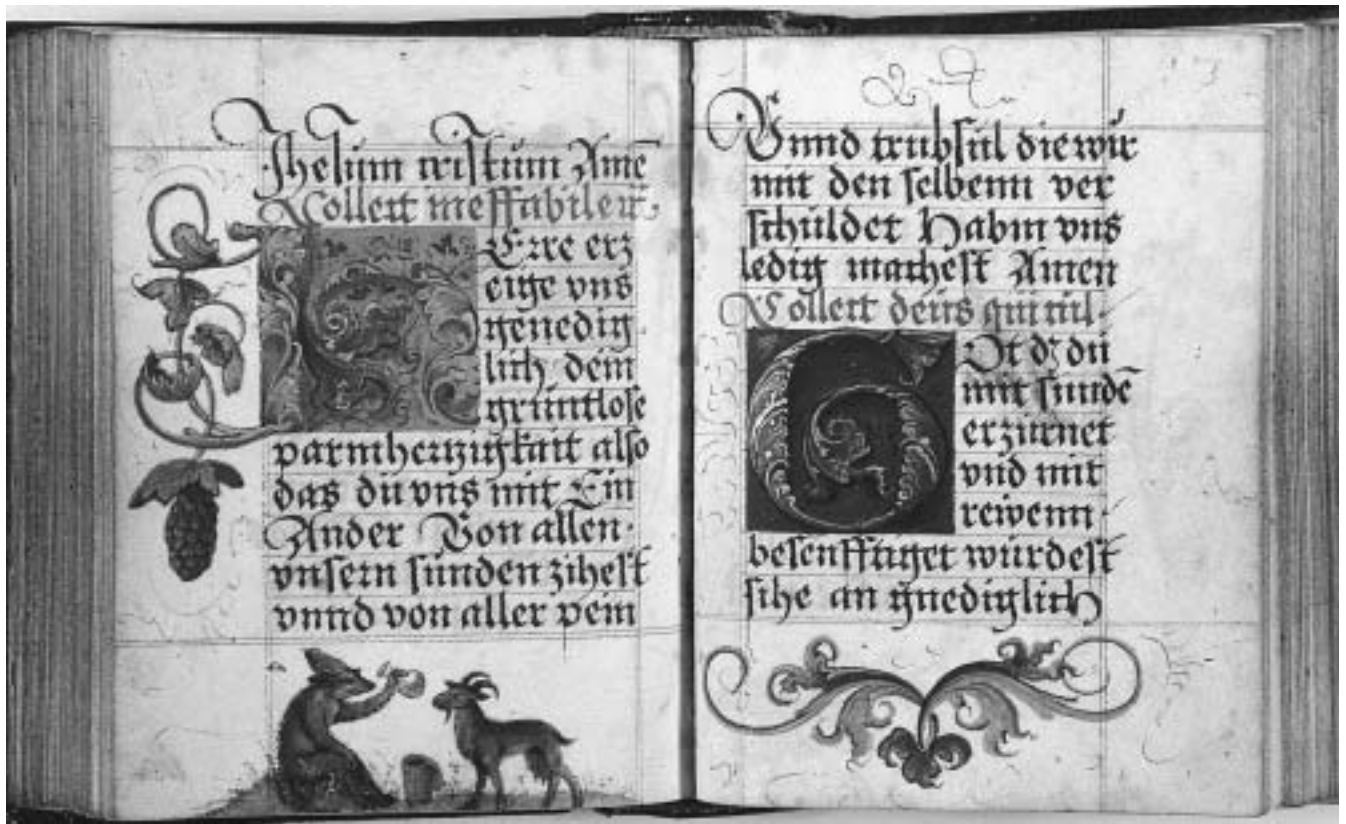 Jhesum cristum Amē
Collect ineffabilem
HErre erz
eige vns
genedig
lich dein
gruntlose
parmherczigkait also
das du vns mit Ein
Ander Von allen
vnsern sunden zihest
vnnd von aller pein
Vnnd trubsul die wir
mit den selbenn ver
schuldet Habin vns
ledig machest Amen
Collect deus qui cul
GOt d' du
mit sundē
erzurnet
vnd mit
reivenn
besenfftiget wurdest
sihe an gnediglich